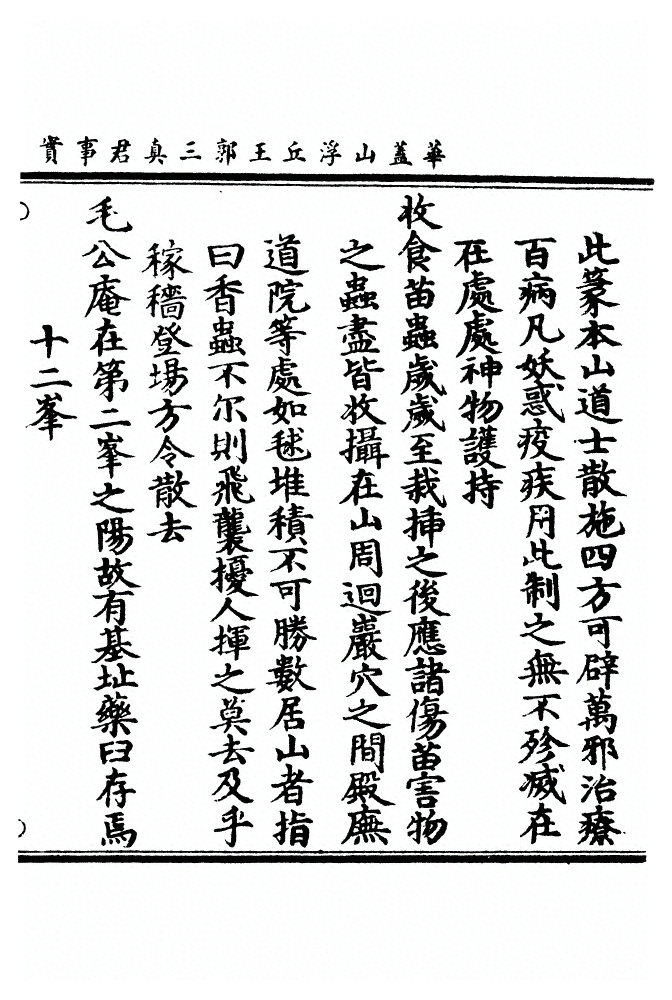 華蓋山浮丘王郭三真君事實
此篆本山道士散施四方可辟萬邪治療
百病凡妖惑疫疾用此制之無不殄滅在
在處處神物護持
收食苗蟲歲歲至栽揷之後應諸傷苗害物
之蟲盡皆收攝在山周迴巖穴之間殿廡
道院等處如毬堆積不可勝數居山者指
曰香蟲不尔則飛襲擾人揮之莫去及乎
稼穡登場方令散去
毛公庵在第二峯之陽故有基址藥臼存焉
十二峯